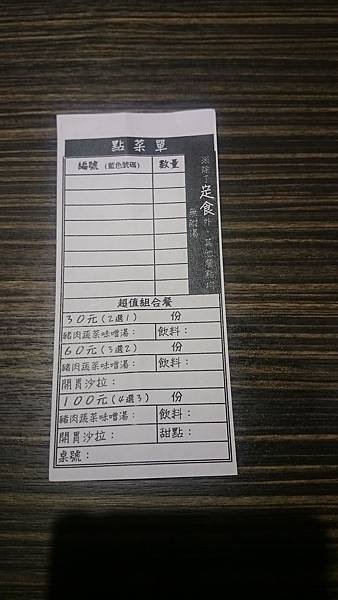 點菜單
編號 (藍色號碼) 數量
※除了定食外,其他餐點均
無附湯
超值組合餐
30元(2選1) 份
豬肉蔬菜味噌湯: 飲料:
60元(3選2) 份
豬肉蔬菜味噌湯: 飲料:
開胃沙拉:
100元(4選3) 份
豬肉蔬菜味噌湯: 飲料:
開胃沙拉: 甜點:
桌號: